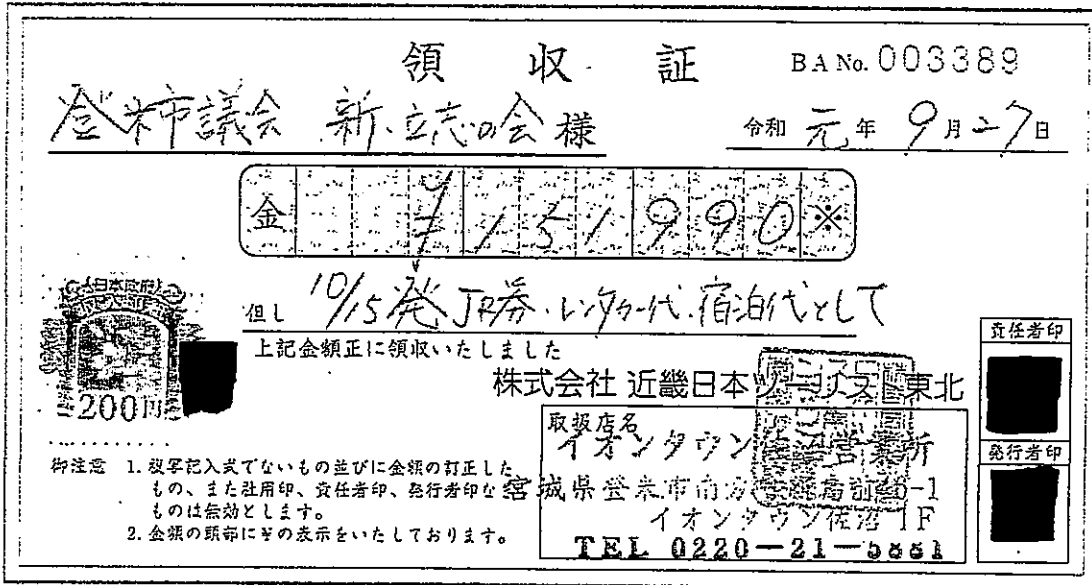 領収証 BA No. 003389
登米市議会 新・立志の会 様 令和 元 年 9 月 27 日
金 ¥151990※
但し 10/15発 JR券・レンタカー代・宿泊代として
上記金額正に領収いたしました
日本政府
200円
株式会社 近畿日本ツーリスト東北
取扱店名
イオンタウン佐沼営業所
宮城県登米市南方
イオンタウン佐沼 1F
TEL 0220-21-5881
責任者印
発行者印
御注意 1. 複写記入式でないもの並びに金額の訂正した
もの、また社用印、責任者印、発行者印な
ものは無効とします。
2. 金額の頭部に¥の表示をいたしております。